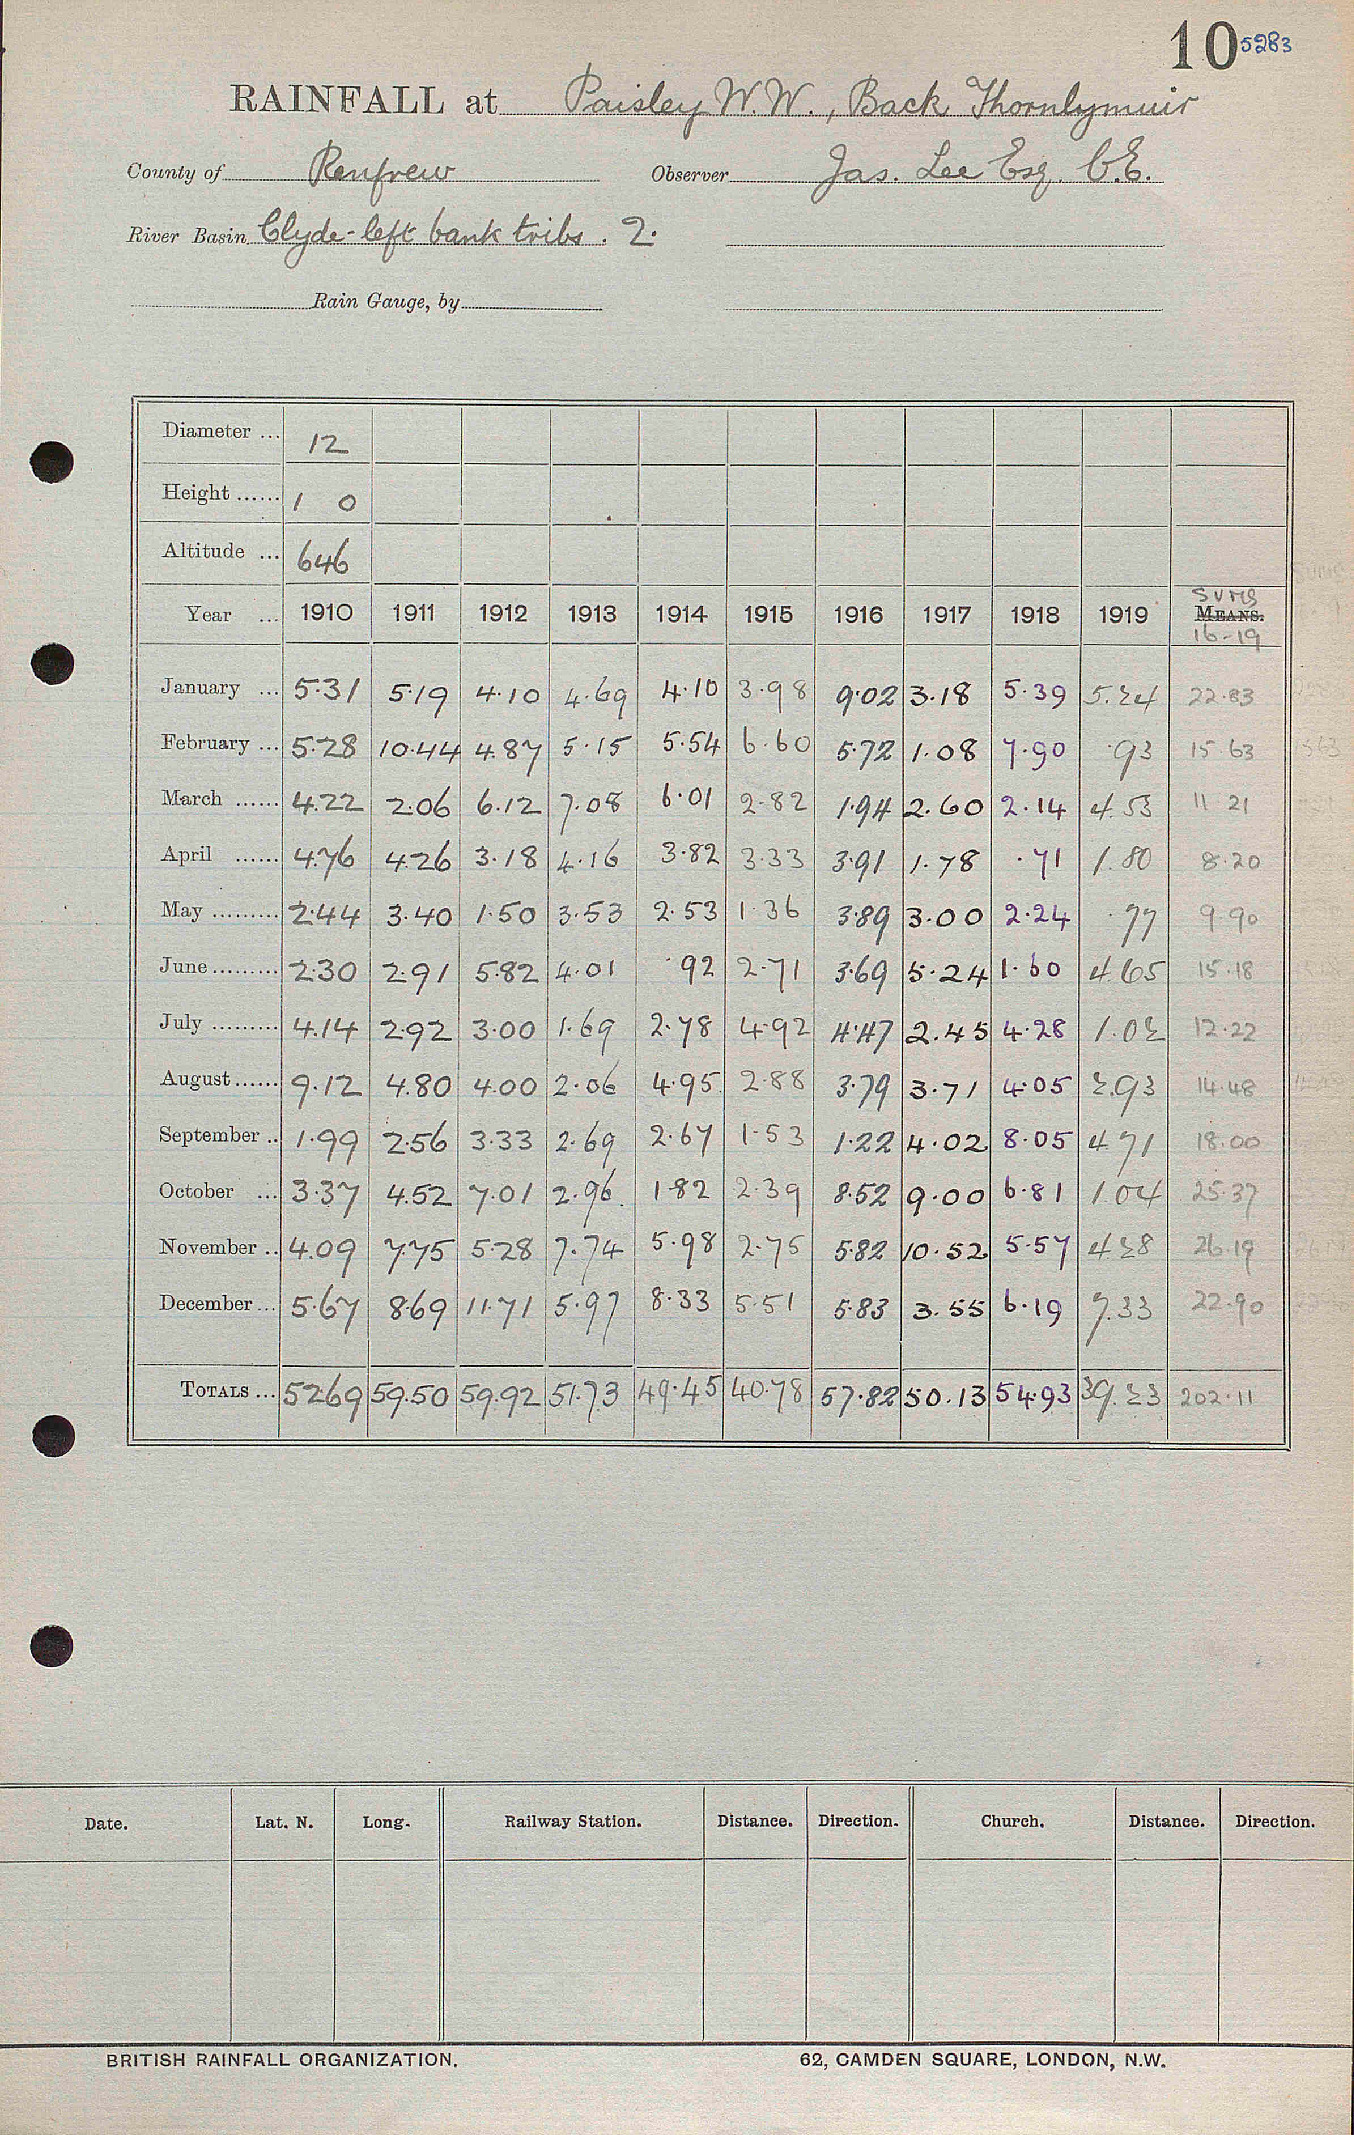 10 5283
RAINFALL at Paisley W.W., Back Thornlymuir
County of Renfrew Observer Jas. Lee Esq. C.E.
River Basin Clyde-left bank tribs. 2.
Rain Gauge, by
Diameter ... 12
Height ...... 1 0
Altitude ... 646
Year ... 1910 1911 1912 1913 1914 1915 1916 1917 1918 1919 SUMS MEANS. 16-19
January ... 5.31 5.19 4.10 4.69 4.10 3.98 9.02 3.18 5.39 5.24 22.83
February ... 5.28 10.44 4.87 5.15 5.54 6.60 5.72 1.08 7.90 .93 15.63
March ...... 4.22 2.06 6.12 7.08 6.01 2.82 1.94 2.60 2.14 4.53 11 21
April ...... 4.76 4.26 3.18 4.16 3.82 3.33 3.91 1.78 .71 1.80 8.20
May ......... 2.44 3.40 1.50 3.53 2.53 1.36 3.89 3.00 2.24 .77 9.90
June ......... 2.30 2.91 5.82 4.01 .92 2.71 3.69 5.24 1.60 4.65 15.18
July ......... 4.14 2.92 3.00 1.69 2.78 4.92 4.47 2.45 4.28 1.02 12.22
August ...... 9.12 4.80 4.00 2.06 4.95 2.88 3.79 3.71 4.05 2.93 14.48
September .. 1.99 2.56 3.33 2.69 2.67 1.53 1.22 4.02 8.05 4.71 18.00
October ... 3.37 4.52 7.01 2.96 1.82 2.39 8.52 9.00 6.81 1.04 25.37
November .. 4.09 7.75 5.28 7.74 5.98 2.75 5.82 10.52 5.57 4.28 26.19
December ... 5.67 8.69 11.71 5.97 8.33 5.51 5.83 3.55 6.19 7.33 22.90
TOTALS ... 52.69 59.50 59.92 51.73 49.45 40.78 57.82 50.13 54.93 39.23 202.11
Date. Lat. N. Long. Railway Station. Distance. Direction. Church. Distance. Direction.
BRITISH RAINFALL ORGANIZATION. 62, CAMDEN SQUARE, LONDON, N.W.